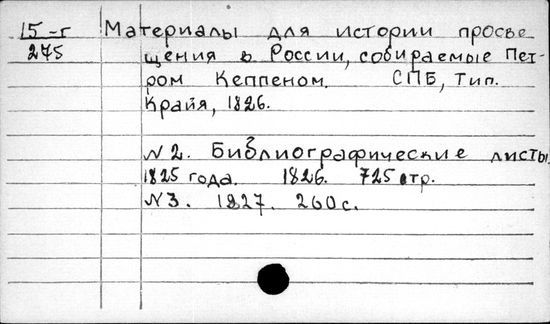 15-г Материалы для истории просве
275 щения в России, собираемые Пет-
ром Кеппеном. СПБ, Тип.
Крайя, 1826.
№2. Библиографические листы
1825 года. 1826. 725 стр.
№3. 1827. 260 с.